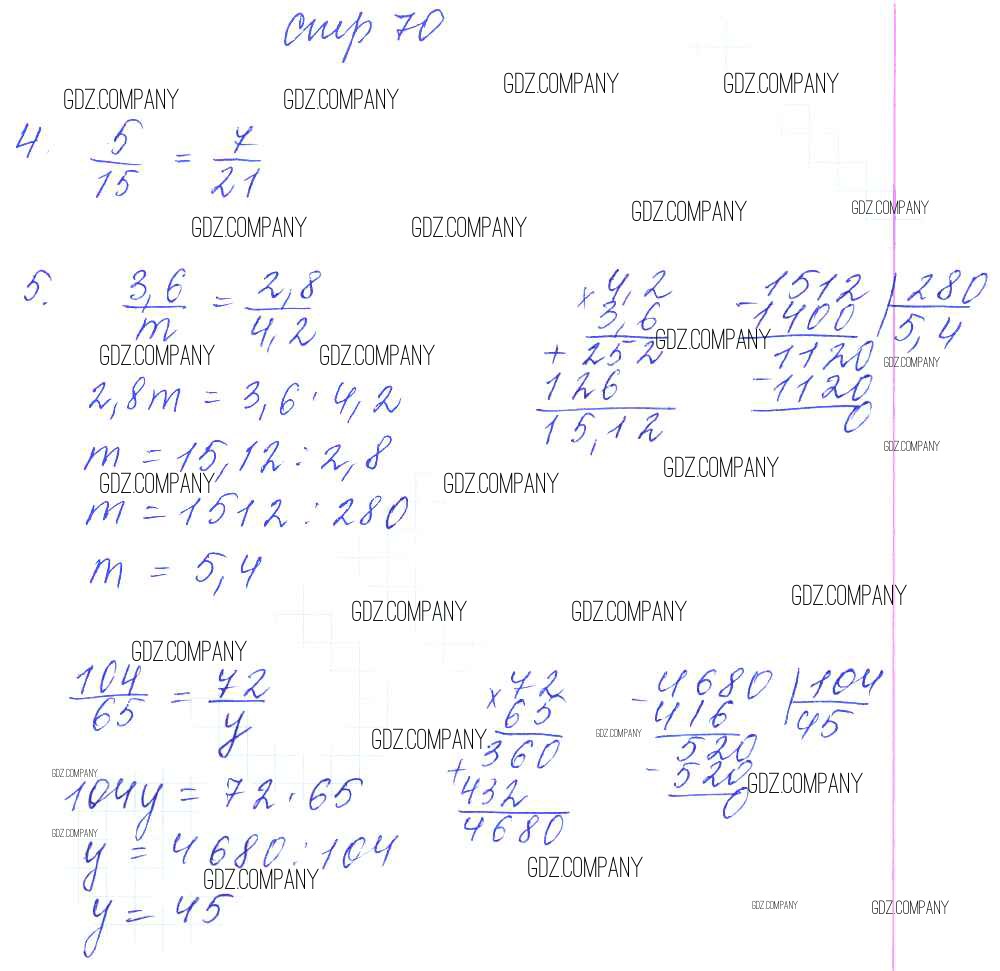 стр 70
GDZ.COMPANY GDZ.COMPANY GDZ.COMPANY GDZ.COMPANY
4. 5/15 = 7/21
GDZ.COMPANY GDZ.COMPANY GDZ.COMPANY GDZ.COMPANY
5. 3,6/m = 2,8/4,2
GDZ.COMPANY GDZ.COMPANY GDZ.COMPANY GDZ.COMPANY
2,8m = 3,6 · 4,2
m = 15,12 : 2,8
GDZ.COMPANY GDZ.COMPANY GDZ.COMPANY GDZ.COMPANY
m = 1512 : 280
m = 5,4
× 4,2
3,6
+ 252
126
15,12
- 1512 | 280
1400 5,4
1120
- 1120
0
GDZ.COMPANY GDZ.COMPANY GDZ.COMPANY
GDZ.COMPANY
104/65 = 72/y
GDZ.COMPANY GDZ.COMPANY
GDZ.COMPANY GDZ.COMPANY
104y = 72 · 65
GDZ.COMPANY
y = 4680 : 104
GDZ.COMPANY GDZ.COMPANY
y = 45
× 72
65
360
+ 432
4680
- 4680 | 104
416 45
520
- 520
0
GDZ.COMPANY GDZ.COMPANY